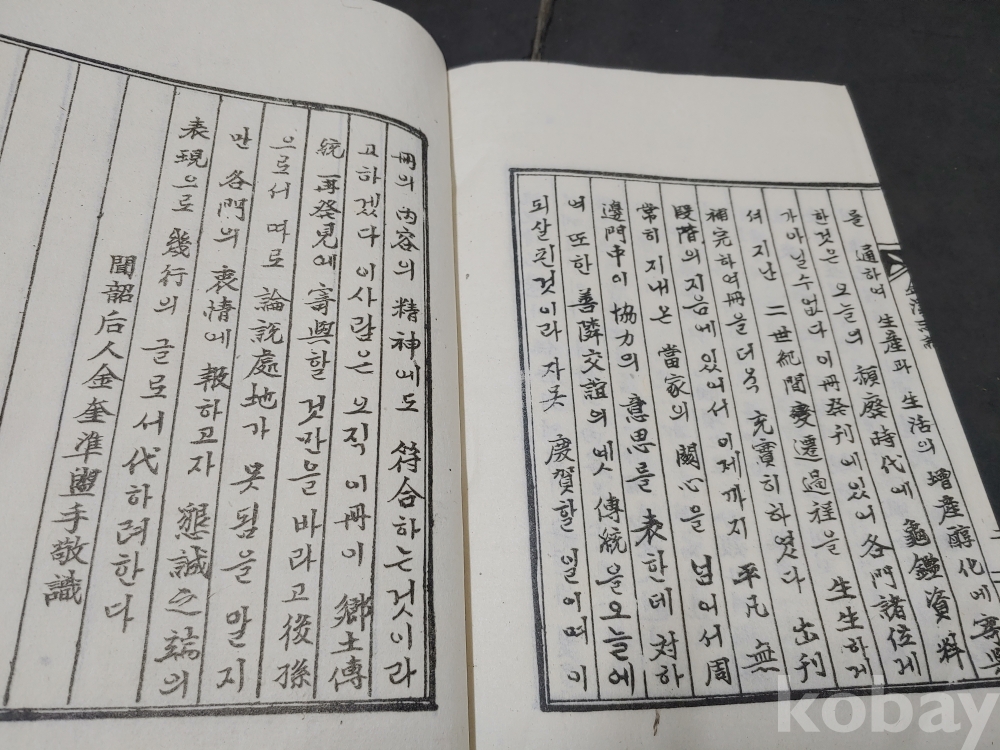 를 通하여 生産과 生活의 增産醇化에 寄與
한것은 오늘의 頹廢時代에 龜鑑資料
가아닐수없다 이冊發刊에있어 各門諸位게
셔 지난 二世紀間変遷過程을 生生하게
補完하여冊을더욱 充實히하였다 出刊
段階의지음에있어서 이제까지 平凡無
常히지내온 當家의 關心을 넘어서周
邊門中이 協力의 意思를 表한데 対하
여 또한 善隣交誼의 옛 傳統을오늘에
되살린것이라 자못 慶賀할 일이며 이
冊의 內容의 精神에도 符合하는것이라
고하겠다 이사람은 오직 이冊이 鄕土傳
統 再發見에 寄與할 것만을 바라고後孫
으로서 따로 論說處地가 못됨을 말지
만 各門의 衷情에 報하고자 懇誠之端의
表現으로 幾行의 글로서代하려한다
聞韶后人金奎準盥手敬識
kobay